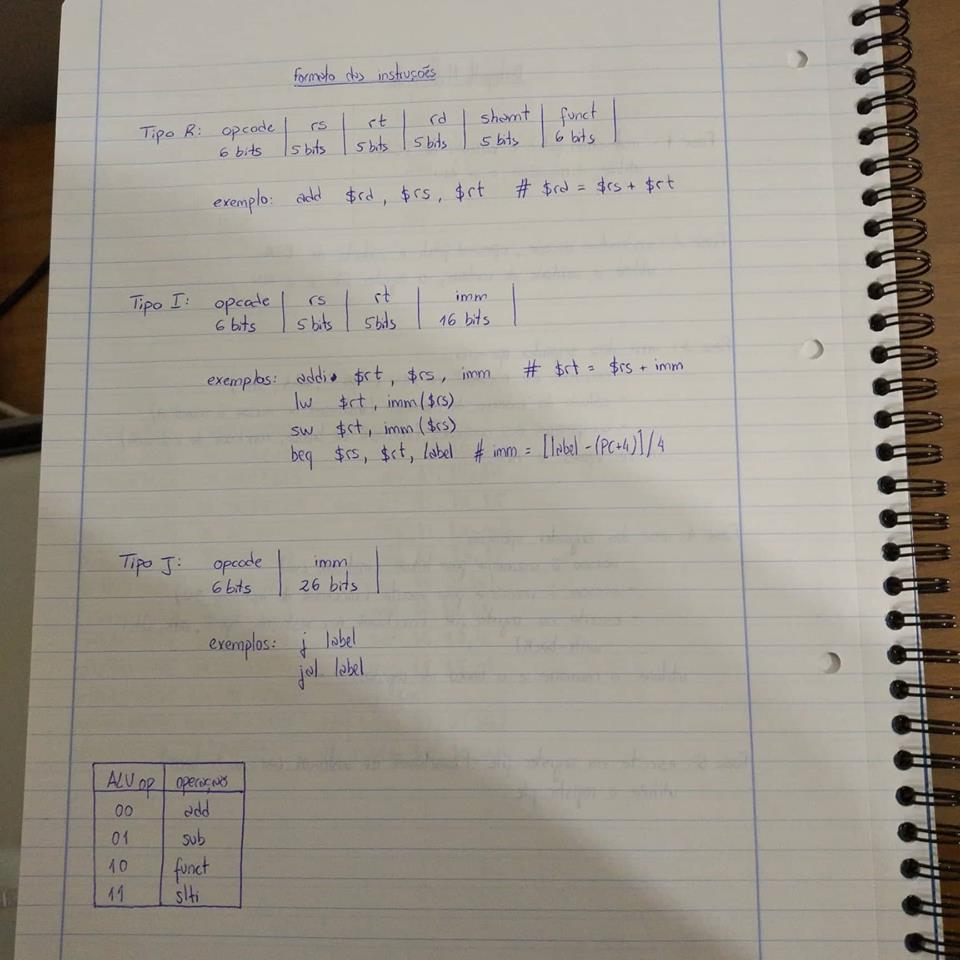 Formato das instruções
Tipo R: opcode | rs | rt | rd | shamt | funct |
6 bits | 5 bits | 5 bits | 5 bits | 5 bits | 6 bits |
exemplo: add $rd, $rs, $rt # $rd = $rs + $rt
Tipo I: opcode | rs | rt | imm |
6 bits | 5 bits | 5 bits | 16 bits |
exemplos: addi $rt, $rs, imm # $rt = $rs + imm
lw $rt, imm($rs)
sw $rt, imm($rs)
beq $rs, $rt, label # imm = [label-(PC+4)]/4
Tipo J: opcode | imm |
6 bits | 26 bits |
exemplos: j label
jal label
ALU OP | operações
00 | add
01 | sub
10 | funct
11 | slti